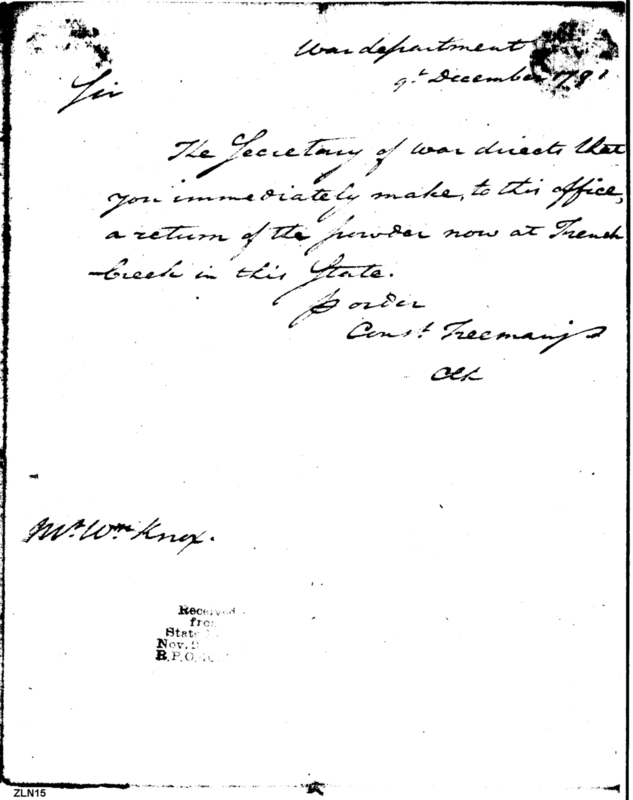 War department
9th December 1791
Sir
The Secretary of war directs that
you immediately make, to this office,
a return of the powder now at French
Creek in this State.
p order
Const. Freeman
Clk
Mr. Wm Knox.
Received
from
State
Nov. 2
R.P.O.
ZLN15